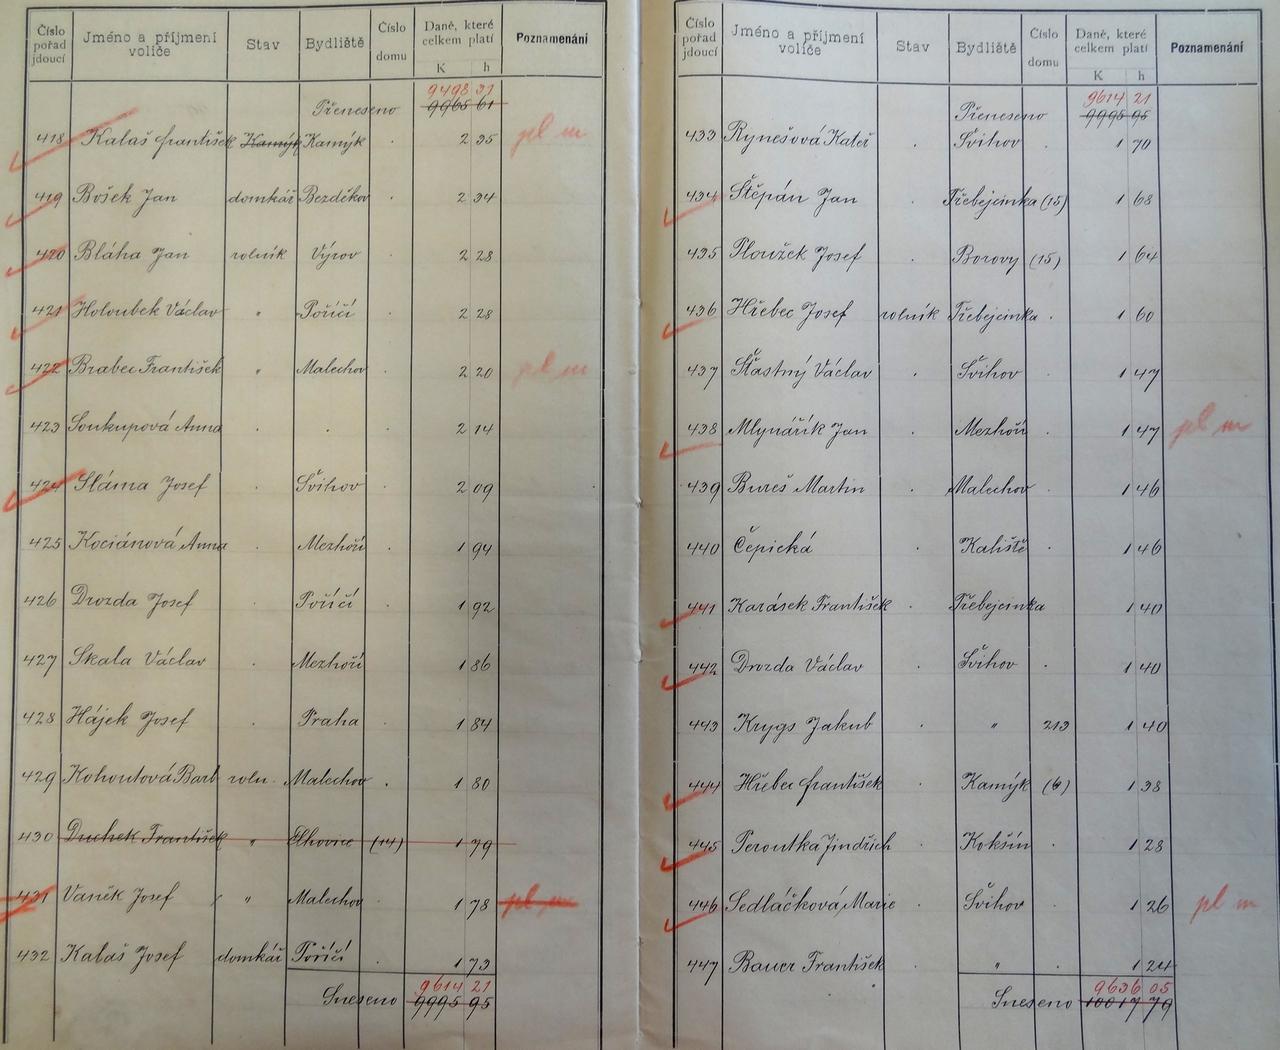 Číslo pořad jdoucí | Jméno a příjmení voliče | Stav | Bydliště | Číslo domu | Daně, které celkem platí K h | Poznamenání
9498 21
Přeneseno 9965 61
418 Kalaš František Kamýk Kamýk 2 35 pl m
419 Bošek Jan domkář Bezděkov . 2 34
420 Bláha Jan rolník Výrov . 2 28
421 Holoubek Václav " Poříčí . 2 28
422 Brabec František " Malechov 2 20 pl m
423 Soukupová Anna . . . 2 14
424 Sláma Josef . Švihov . 2 09
425 Kociánová Anna . Mezhoří . 1 94
426 Drozda Josef . Poříčí . 1 92
427 Skala Václav . Mezhoří 1 86
428 Hájek Josef . Praha . 1 84
429 Kohoutová Barb roln. Malechov . 1 80
430 Duchek František " Elhovice (14) 1 79
431 Vaněk Josef " Malechov . 1 78 pl m
432 Kalaš Josef domkář Poříčí . 1 73
9614 21
Sneseno 9995 95
Číslo pořad jdoucí | Jméno a příjmení voliče | Stav | Bydliště | Číslo domu | Daně, které celkem platí K h | Poznamenání
9614 21
Přeneseno 9995 95
433 Rynešová Kateř . Švihov . 1 70
434 Štěpán Jan . Třebejcinka (15) 1 68
435 Ploužek Josef . Borovy (15) 1 64
436 Hřebec Josef rolník Třebejcinka . 1 60
437 Šťastný Václav . Švihov . 1 47
438 Mlynářík Jan . Mezhoří . 1 47 pl m
439 Bureš Martin . Malechov . 1 46
440 Čepická . Kaliště . 1 46
441 Karásek František . Třebejcinka 1 40
442 Drozda Václav . Švihov . 1 40
443 Krygs Jakub . " 213 1 40
444 Hřebec František . Kamýk (6) 1 38
445 Peroutka Jindřich . Kokšín . 1 28
446 Sedláčková Marie . Švihov . 1 26 pl m
447 Bauer František . " . 1 24
9636 05
Sneseno 10017 79